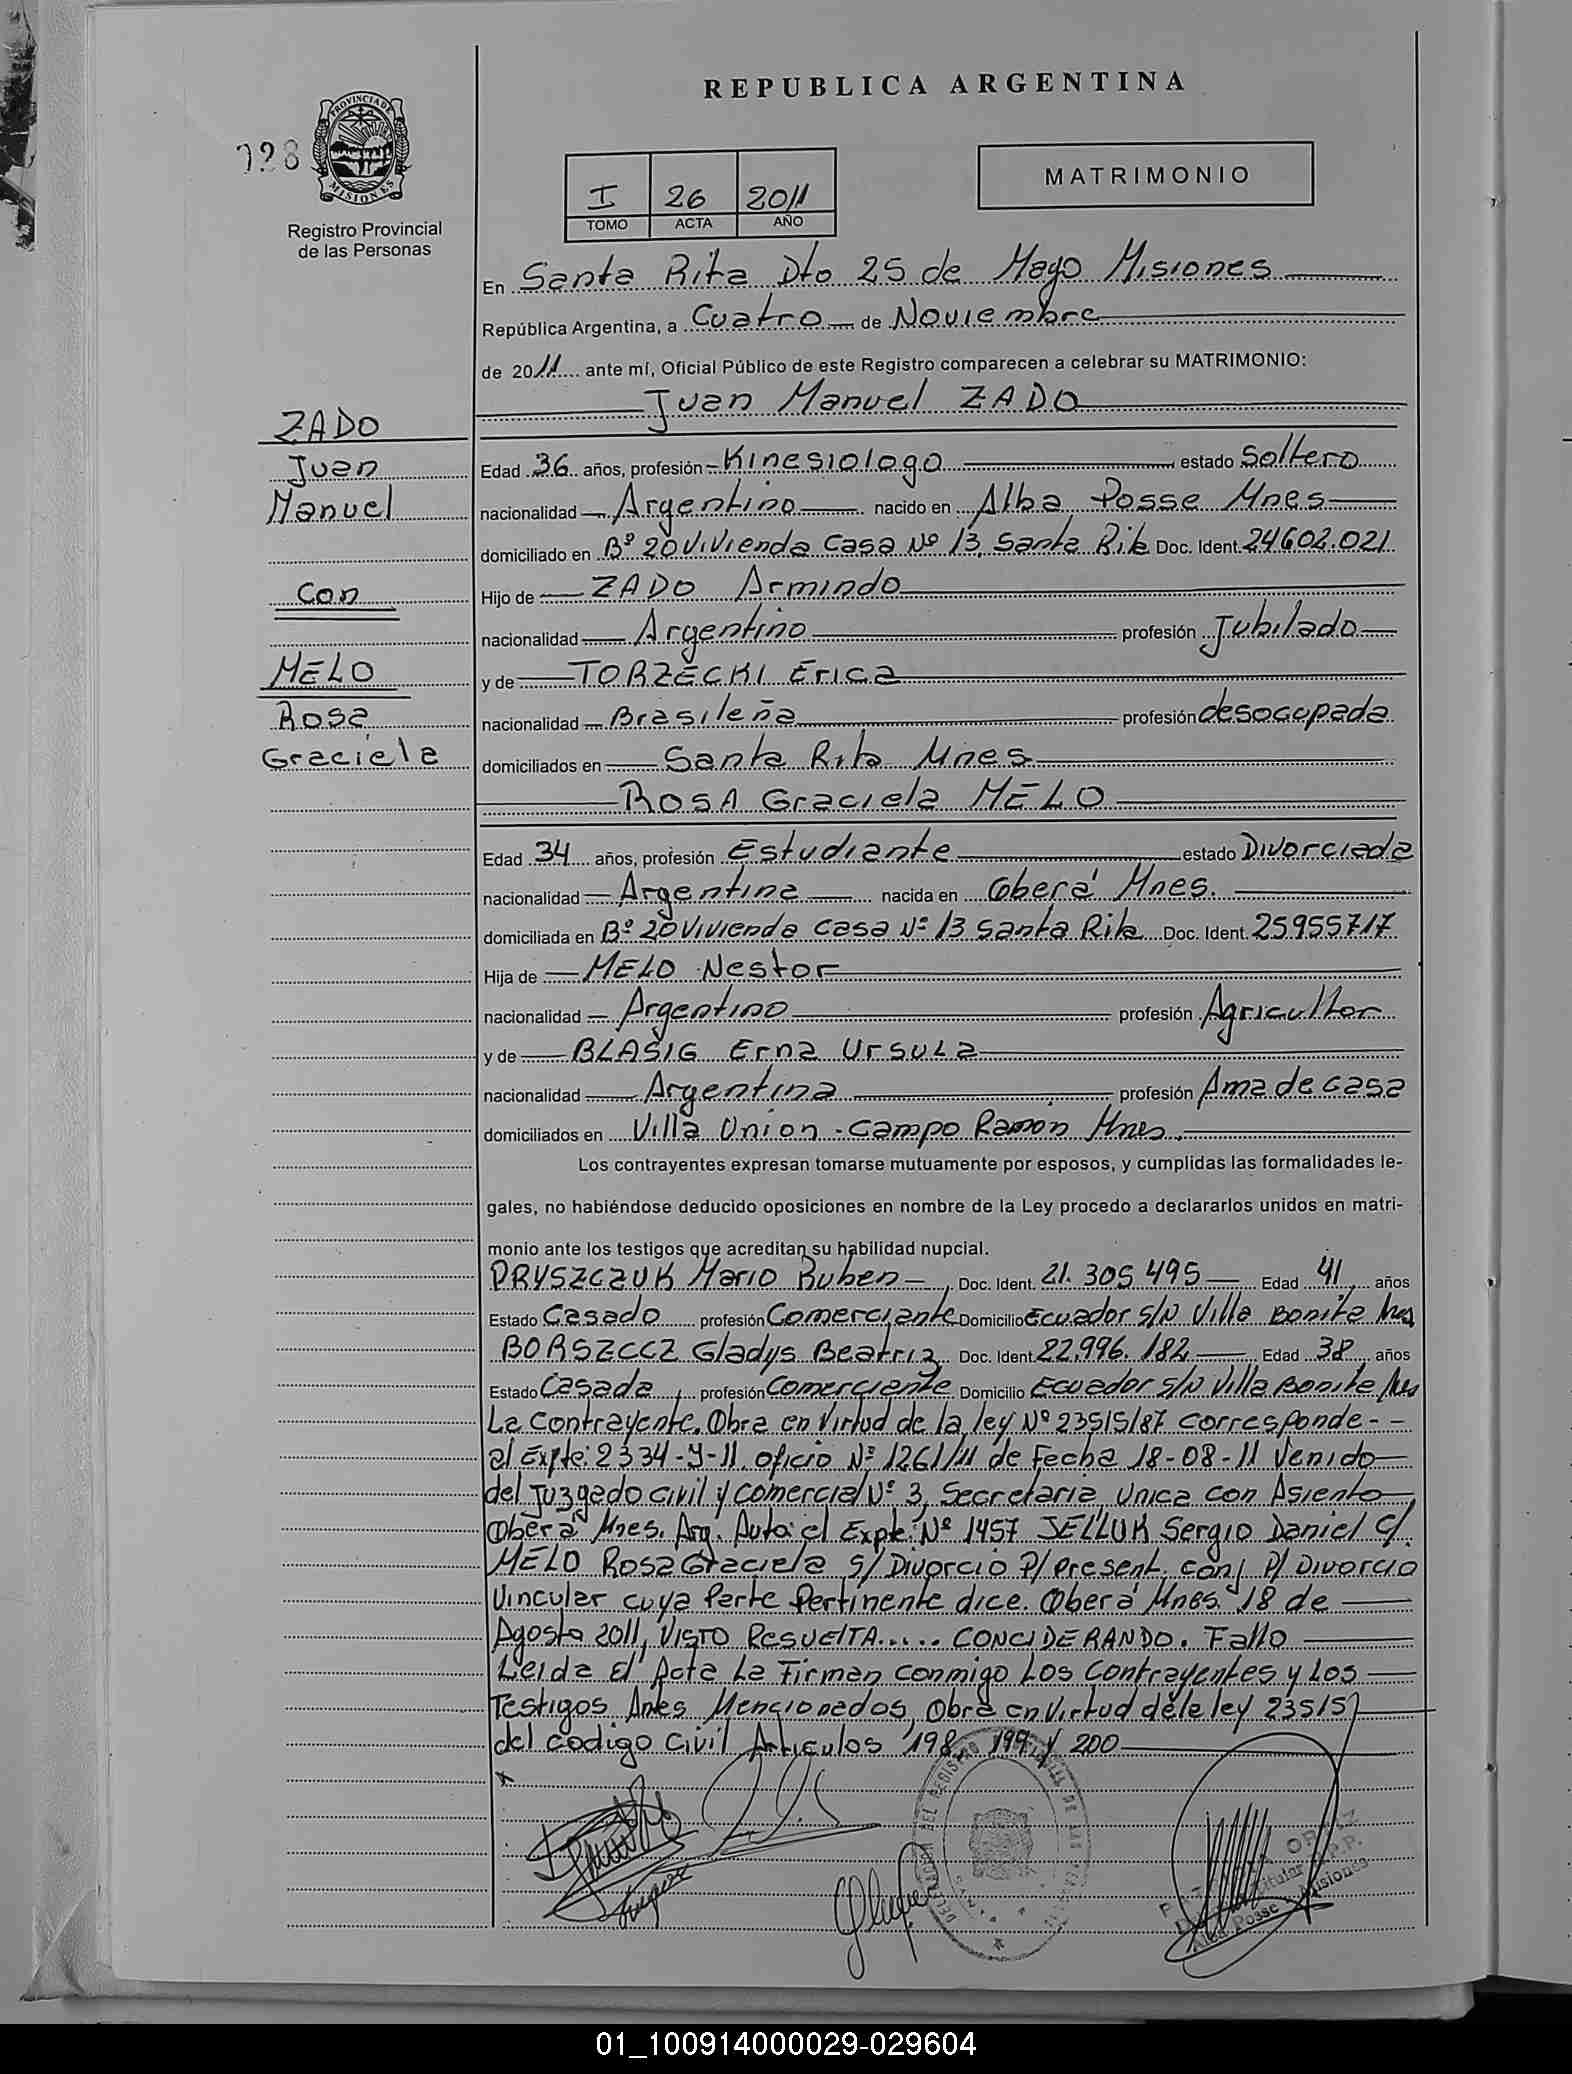 REPUBLICA ARGENTINA
PROVINCIA DE
MISIONES
Registro Provincial
de las Personas
I 26 2011
TOMO ACTA AÑO
MATRIMONIO
En Santa Rita Dto 25 de Mayo Misiones
República Argentina, a Cuatro de Noviembre
de 2011 ante mí, Oficial Público de este Registro comparecen a celebrar su MATRIMONIO:
Juan Manuel ZADO
ZADO
Juan
Manuel
Con
MELO
Rosa
Graciela
Edad 36 años, profesión Kinesiologo estado Soltero
nacionalidad Argentino nacido en Alba Posse Mnes
domiciliado en Bº 20 Vivienda Casa Nº 13 Santa Rita Doc. Ident. 24602.021
Hijo de ZADO Armindo
nacionalidad Argentino profesión Jubilado
y de TORZECKI Erica
nacionalidad Brasileña profesión desocupada
domiciliados en Santa Rita Mnes
ROSA Graciela MELO
Edad 34 años, profesión Estudiante estado Divorciada
nacionalidad Argentina nacida en Oberá Mnes.
domiciliada en Bº 20 Vivienda Casa Nº 13 Santa Rita Doc. Ident. 25955717
Hija de MELO Nestor
nacionalidad Argentino profesión Agricultor
y de BLASIG Erna Ursula
nacionalidad Argentina profesión Ama de casa
domiciliados en Villa Union - Campo Ramón Mnes.
Los contrayentes expresan tomarse mutuamente por esposos, y cumplidas las formalidades le-
gales, no habiéndose deducido oposiciones en nombre de la Ley procedo a declararlos unidos en matri-
monio ante los testigos que acreditan su habilidad nupcial.
PRYSZCZUK Mario Ruben, Doc. Ident. 21.305 495 Edad 41 años
Estado Casado profesión Comerciante Domicilio Ecuador s/N Villa Bonita Mnes
BORSZCCZ Gladys Beatriz Doc. Ident. 22.996.182 Edad 38 años
Estado Casada, profesión Comerciante Domicilio Ecuador s/N Villa Bonita Mnes
La Contrayente. Obra en Virtud de la ley Nº 23515/87 corresponde--
al Expte: 2334-Y-11. oficio Nº 1261/11 de Fecha 18-08-11 Venido
del Juzgado civil y comercial Nº 3, Secretaria unica con Asiento
Oberá Mnes. Arg. Auto: el Expte: Nº 1457 JELLUK Sergio Daniel C/.
MELO Rosa Graciela S/ Divorcio P/ Present. conj P/ Divorcio
Vincular cuya Parte Pertinente dice. Oberá Mnes. 18 de
Agosto 2011, VISTO RESUELTA..... CONCIDERANDO. Fallo
Leida El Acta La Firman conmigo Los Contrayentes y Los
Testigos Antes Mencionados, Obra en Virtud de la ley 23515
del codigo Civil Articulos 198 199 y 200
ORTIZ
Titular
Alba Posse - Misiones
01_100914000029-029604